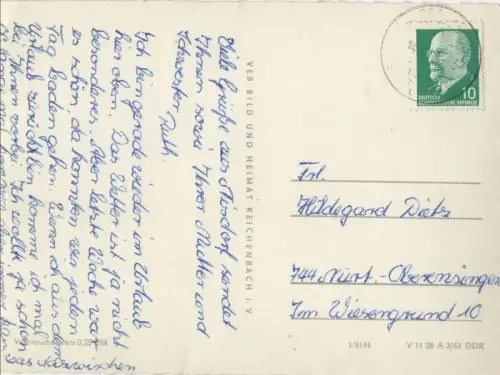 Viele Grüße aus Nindorf sendet
Ihnen sowie Ihrer Mutter und
Schwester Ruth.
Ich bin gerade wieder im Urlaub
hier oben. Das Wetter ist ja nicht
besonderes. Aber letzte Woche war
es schön da konnten wir jeden
Tag baden gehen. Wenn ich aus dem
Urlaub zurück bin komme ich mal
bei Ihnen vorbei. Ich wollte ja schon
immer kam
was dazwischen
VEB BILD UND HEIMAT REICHENBACH i. V.
Verbraucherpreis 0,20 DM
DEUTSCHE
DEMOKRATISCHE REPUBLIK
10
Frl.
Hildegard Dietz
744 Nürt.-Oberensingen
Im Wiesengrund 10
1/8144
V 11 28 A 3/63 DDR